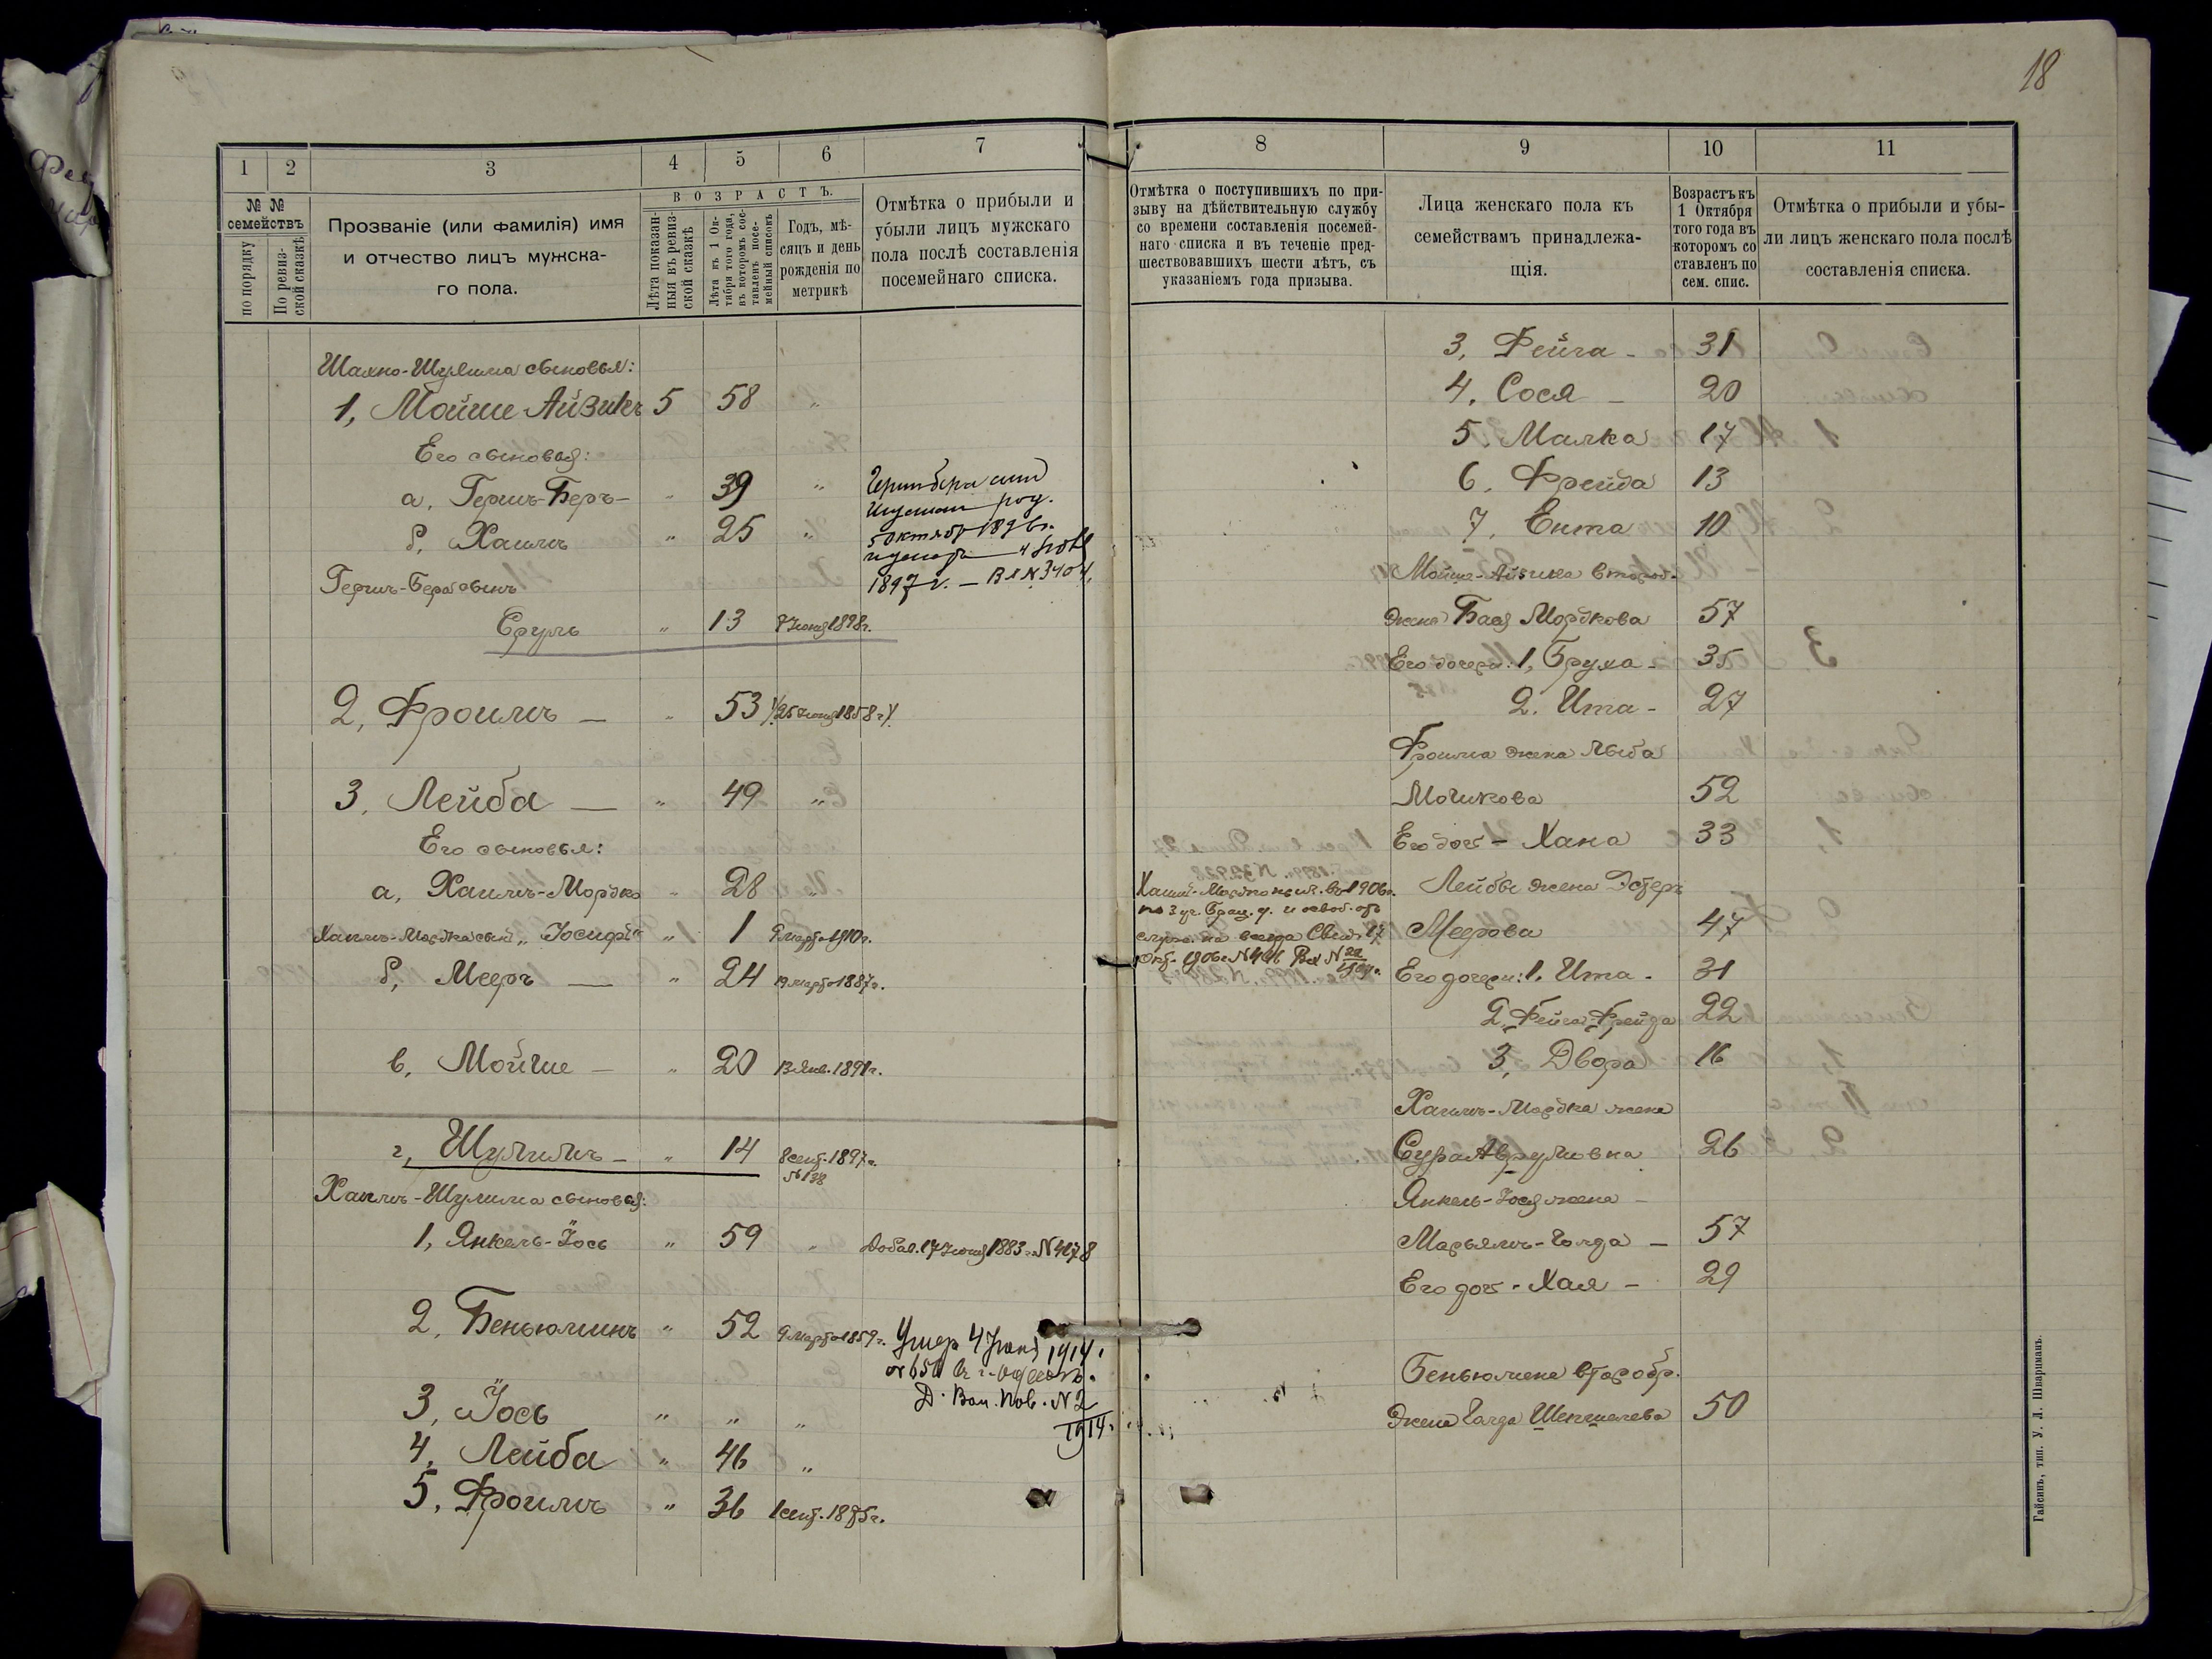 18
1
2
3
4
5
6
7
№ №
семействъ
по порядку
По ревиз-
ской сказкѣ
Прозваніе (или фамилія) имя
и отчество лицъ мужска-
го пола.
ВОЗРАСТЪ.
Лѣта показан-
ныя въ ревиз-
ской сказкѣ
Лѣта къ 1 Ок-
тября того года,
въ которомъ сос-
тавленъ посе-
мейный списокъ
Годъ, мѣ-
сяцъ и день
рожденія по
метрикѣ
Отмѣтка о прибыли и
убыли лицъ мужскаго
пола послѣ составленія
посемейнаго списка.
Шахно-Шулима сыновья:
1, Мойше Айзикъ 5 58 "
Его сыновья:
а, Гершъ-Беръ - " 39 "
б, Хаимъ " 25 "
5 октяб 1896г.
1897 г. - Вх № 3404.
Гершъ-Бера сынъ
Сруль " 13 8 Іюня 1898г.
2, Фроимъ - " 53 25 Іюня 1858г.
3, Лейба - " 49 "
Его сыновья:
а, Хаимъ-Мордко " 28 "
Хаимъ-Мордка сынъ Іосифъ " 1 9 марта 1910г.
б, Мееръ - " 24 19 марта 1887г.
в, Мойше - " 20 13 Янв. 1891г.
г, Шулимъ - " 14 8 сент. 1897г.
№ 138
Хаимъ-Шулима сыновья:
1, Янкель-Іось " 59 " Добав. 17 Іюня 1883 г. № 4178
2, Беньюминъ " 52 9 марта 1859г. Умер 4 Іюня 1914.
№ 2
1914.
3, Іось " " "
4, Лейба " 46 "
5, Фроимъ " 36 1 сент. 1875г.
8
9
10
11
Отмѣтка о поступившихъ по при-
зыву на дѣйствительную службу
со времени составленія посемей-
наго списка и въ теченіе пред-
шествовавшихъ шести лѣтъ, съ
указаніемъ года призыва.
Лица женскаго пола къ
семействамъ принадлежа-
щія.
Возрастъ къ
1 Октября
того года въ
которомъ со
ставленъ по
сем. спис.
Отмѣтка о прибыли и убы-
ли лицъ женскаго пола послѣ
составленія списка.
3, Фейга - 31
4, Сося - 20
5, Малка 17
6, Фрейда 13
7, Ента 10
Мойше-Айзика второб.
жена Бася Мордкова 57
Его дочери: 1, Бруха - 35
2, Ита - 27
Фроима жена Лыба
Мошкова 52
Его доч - Хана 33
Хаим-Мордко въ 1906г.
по 3 уч. Брац. у. и освоб. отъ
служ. на всегда Свид. 17
Окт. 1906г.
Лейбы жена Эстеръ
Меерова 47
Его дочери: 1, Ита - 31
2, Фейга-Фрейда 22
3, Двора 16
Хаимъ-Мордка жена
Сура Аврумовна 26
Янкель-Іося жена -
Марьямъ-Голда - 57
Его доч - Хая - 29
Беньюмена второбр.
жена Голда Шепшелева 50
Гайсинъ, тип. У. Л. Шварцманъ.